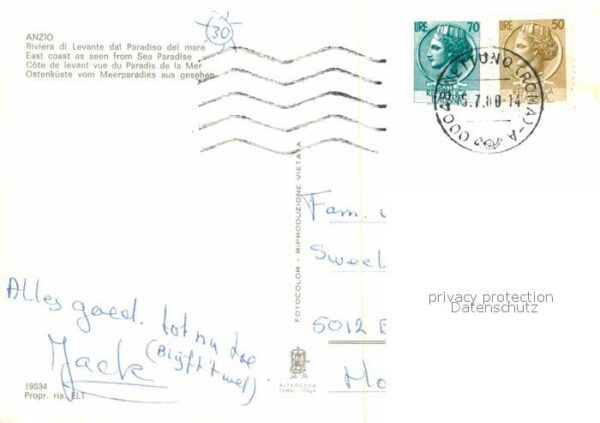 ANZIO
Riviera di Levante dal Paradiso del mare
East coast as seen from Sea Paradise
Côte de levant vue du Paradis de la Mer
Ostenküste vom Meerparadies aus gesehen
30
LIRE 70
LIRE 50
00048 NETTUNO (ROMA) - A
5.7.80-14
FOTOCOLOR - RIPRODUZIONE VIETATA
Fam.
Sweel
5012 E
Ho
privacy protection
Datenschutz
Alles goed. tot nu toe
(Blijft 't wel)
Jack
19534
Propr. ris. ELT
ALTEROCCA
TERNI - ITALY